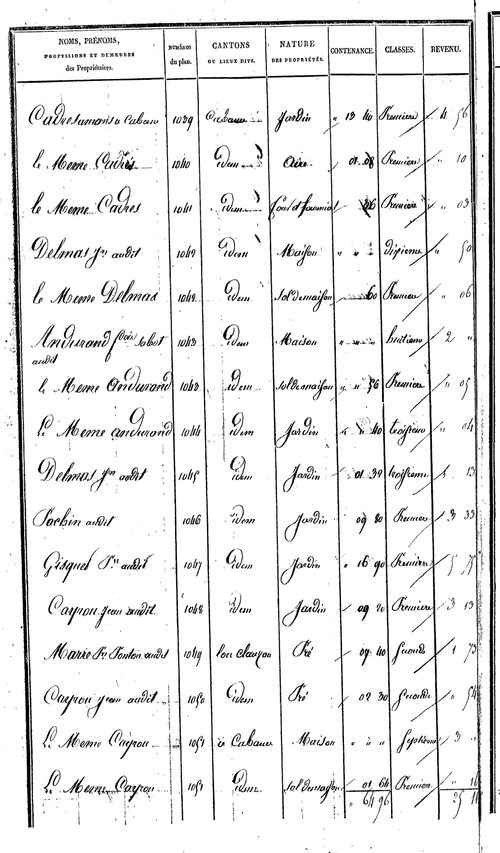 NOMS, PRÉNOMS, PROFESSIONS ET DEMEURES des Propriétaires. NUMÉROS du plan. CANTONS OU LIEUX DITS. NATURE DES PROPRIÉTÉS. CONTENANCE. CLASSES. REVENU.
Cadres a Cabane 1039 Cabane Jardin " 13 40 Premiere 4 56
le Meme Cadres 1040 idem aire " 01 08 Premiere " 10
le Meme Cadres 1041 idem four et fournial 46 Premiere " 03
Delmas audit 1042 idem Maison " " " dixieme " 50
le Meme Delmas 1042 idem sol de maison 60 Premiere " 06
Andurand audit 1043 idem Maison " " " huitieme 2 "
le Meme Andurand 1043 idem sol de maison " " 56 Premiere " 05
Le Meme andurand 1044 idem Jardin " " 40 troisieme " 04
Delmas audit 1045 idem Jardin 01 32 troisieme " 13
audit 1046 idem Jardin 09 80 Premiere 3 33
Gisquet audit 1047 idem Jardin " 16 90 Premiere 5
Cayrou jean audit 1048 idem Jardin 09 20 Premiere 3 13
Marre Fonton audit 1049 Pré 07 40 seconde 1 73
Cayrou jean audit 1050 idem Pré 02 30 seconde " 54
Le Meme Cayrou 1051 a Cabane Maison " " " septieme 3 "
Le Meme Cayrou 1051 idem sol de maison 01 64 Premiere " 16
" 64 96 25